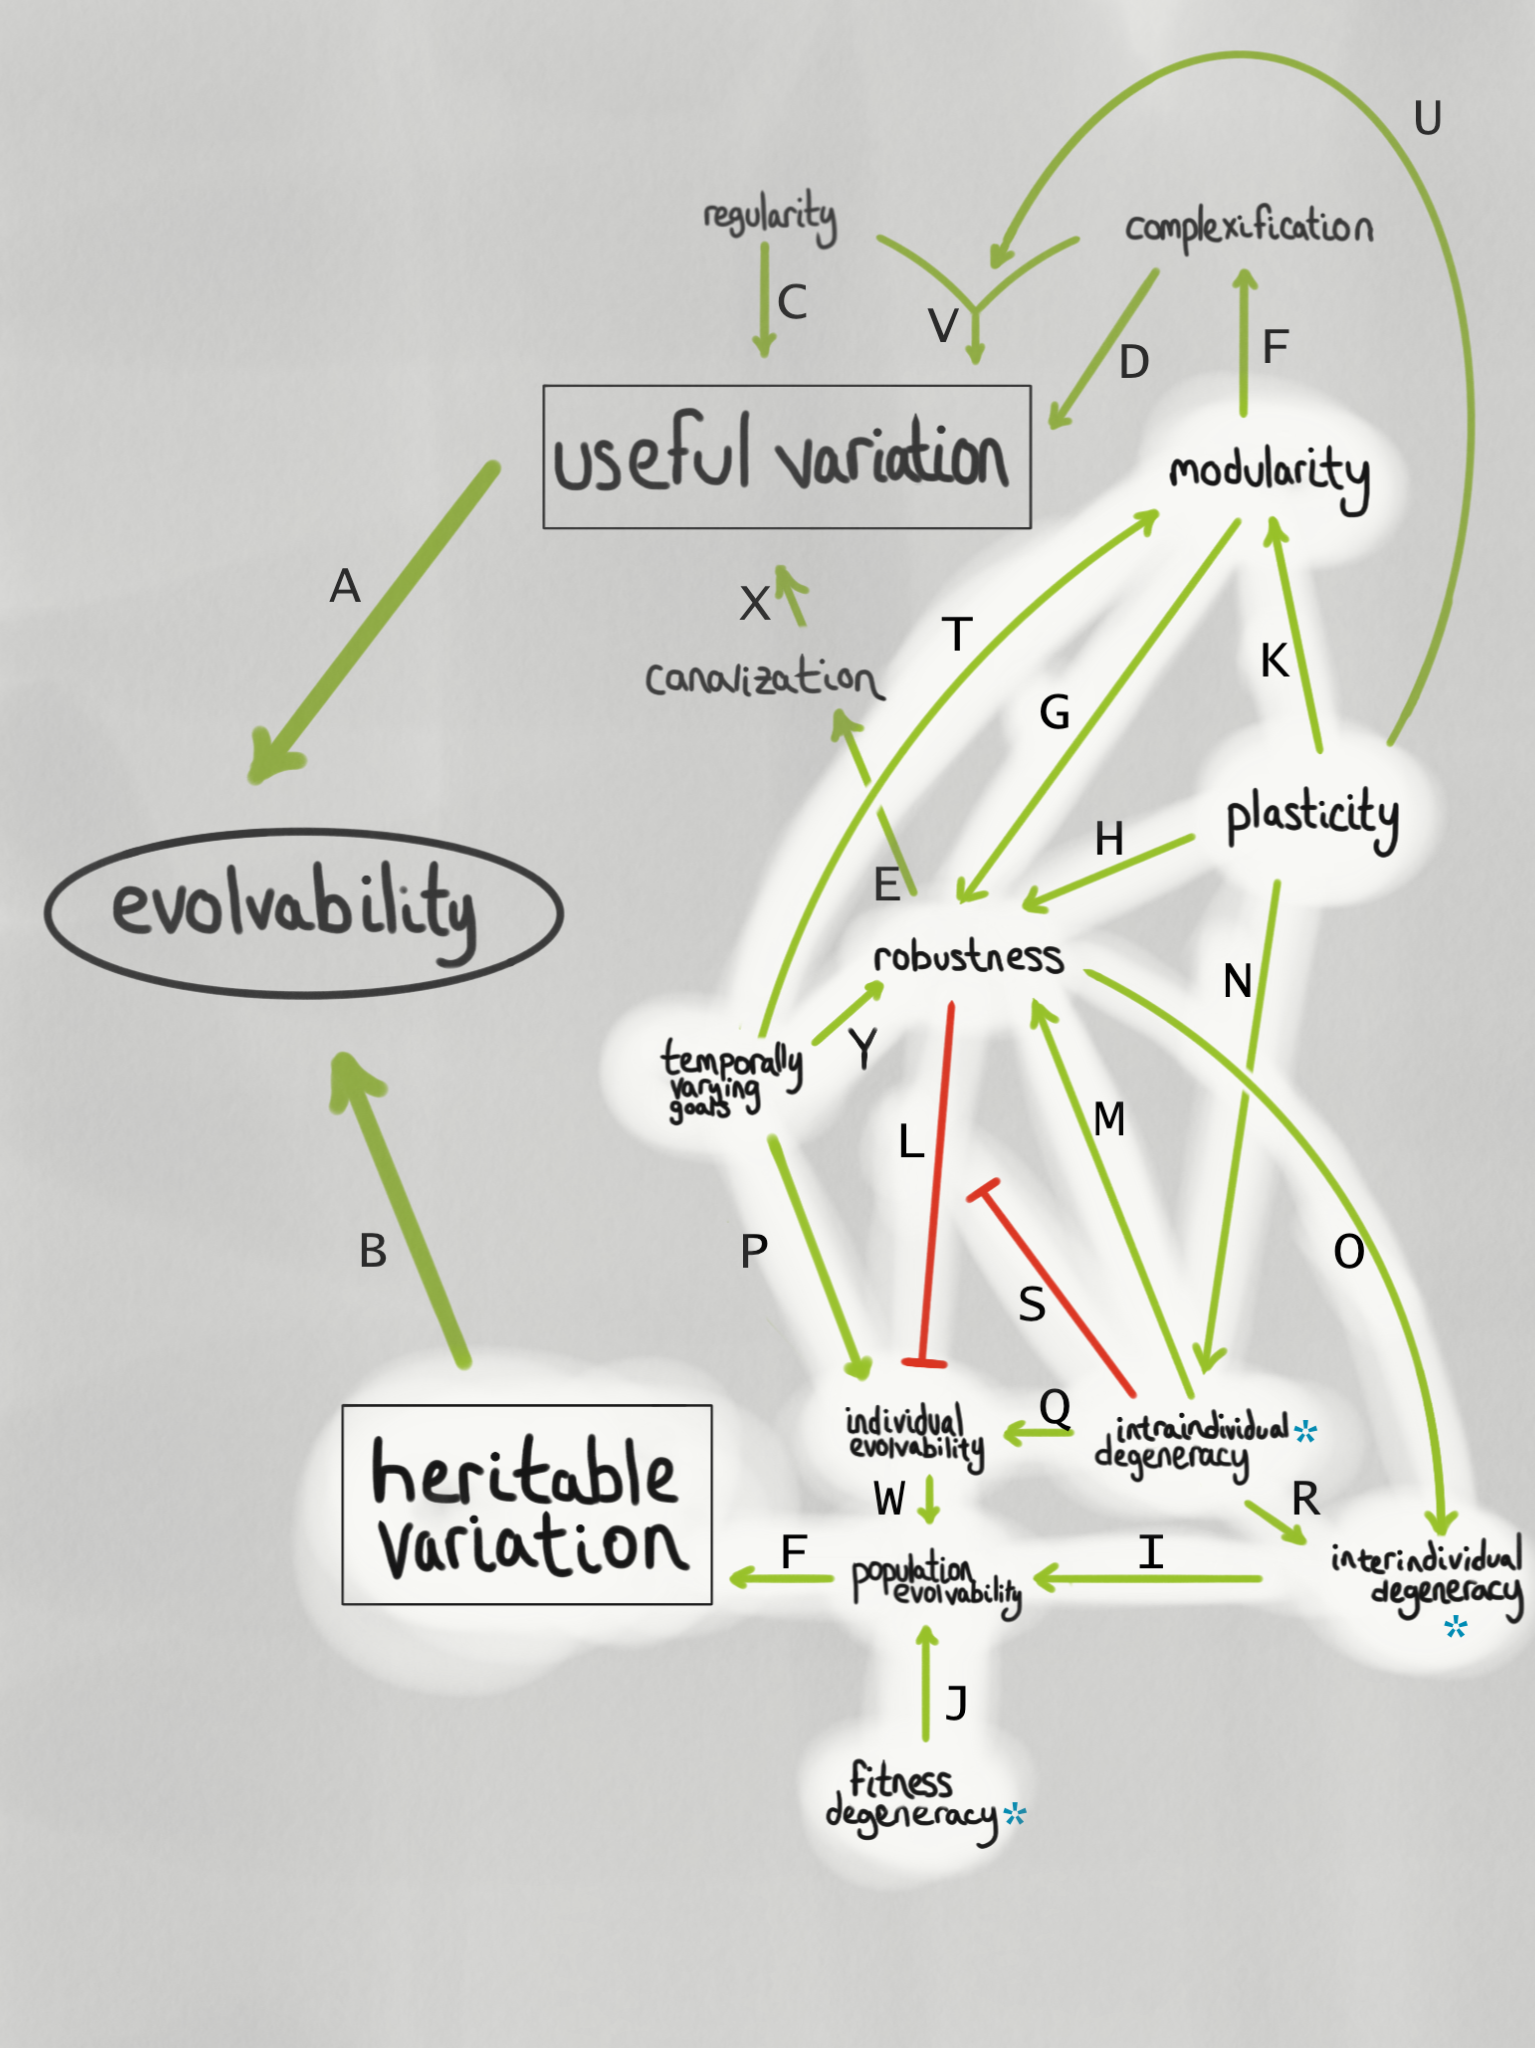 U
regularity
complexification
C
V
D
F
useful variation
modularity
A
X
T
canalization
G
K
plasticity
H
E
evolvability
robustness
N
Y
temporally
varying
goals
L
M
B
P
O
S
individual
evolvability
Q
intraindividual *
degeneracy
heritable
variation
W
R
F
population
evolvability
I
interindividual
degeneracy
*
J
fitness
degeneracy *